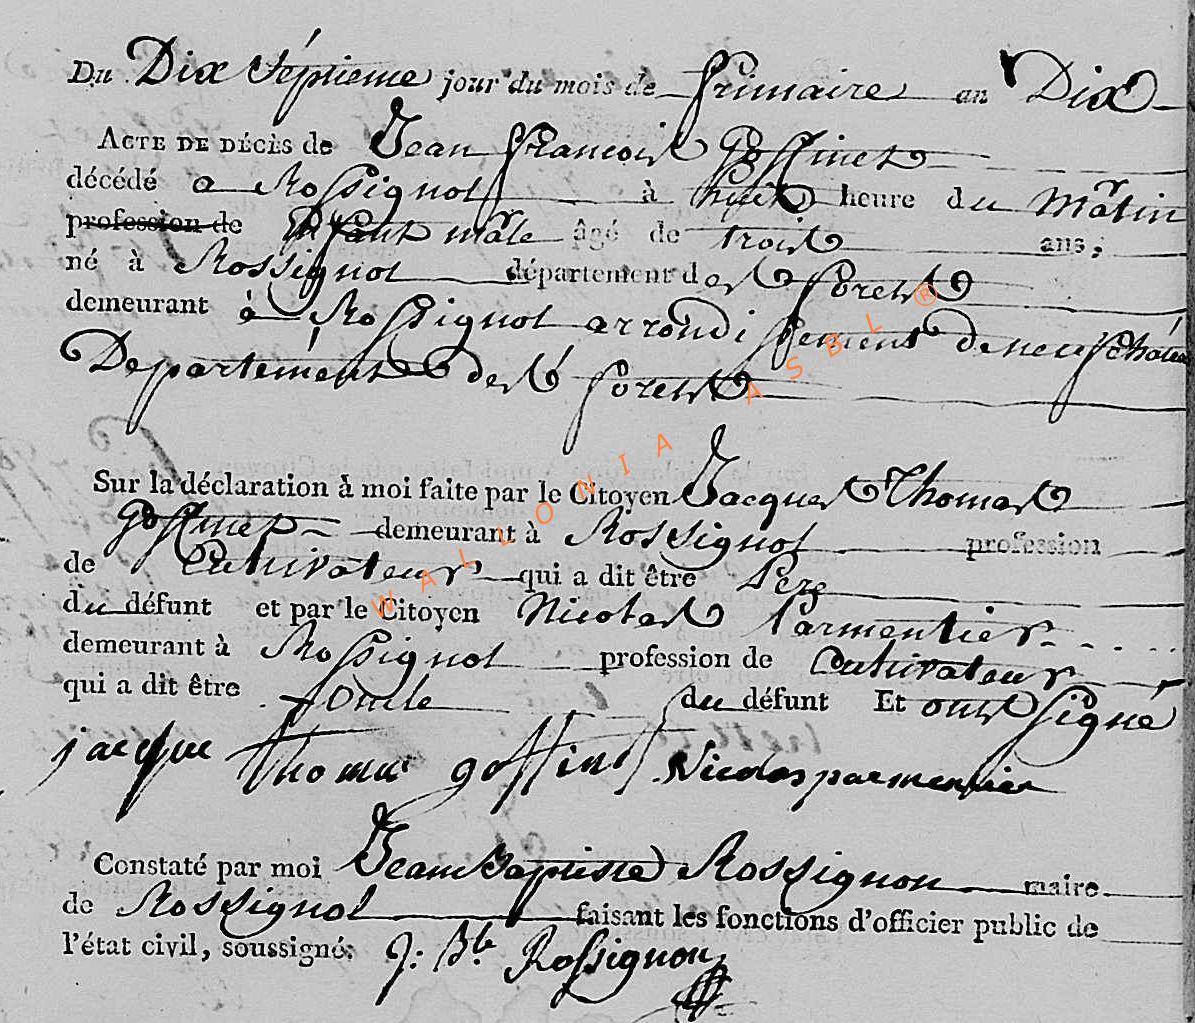 Du Dix Séptieme jour du mois de frimaire an Dix
ACTE DE DÉCÈS de Jean françois Goffinet
décédé a Rossignol à huit heure du Mâtin
profession de Enfant mâle âgé de trois ans;
né à Rossignol département des forets
demeurant à Rossignol arrondissement de neufchâteau
Département des forets
Sur la déclaration à moi faite par le Citoyen Jacques Thomas
Goffinet demeurant à Rossignol profession
de Cultivateur qui a dit être Pere
du défunt et par le Citoyen Nicolas Parmentier
demeurant à Rossignol profession de Cultivateur
qui a dit être oncle du défunt Et ont signé
jacque thomas goffinet Nicolas parmentier
Constaté par moi Jean Baptiste Rossignon maire
de Rossignol faisant les fonctions d'officier public de
l'état civil, soussigné: J: Bte Rossignon
WALLONIA ASBL ®